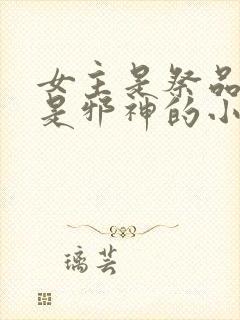 女主是祭品
是邪神的小
璃芸